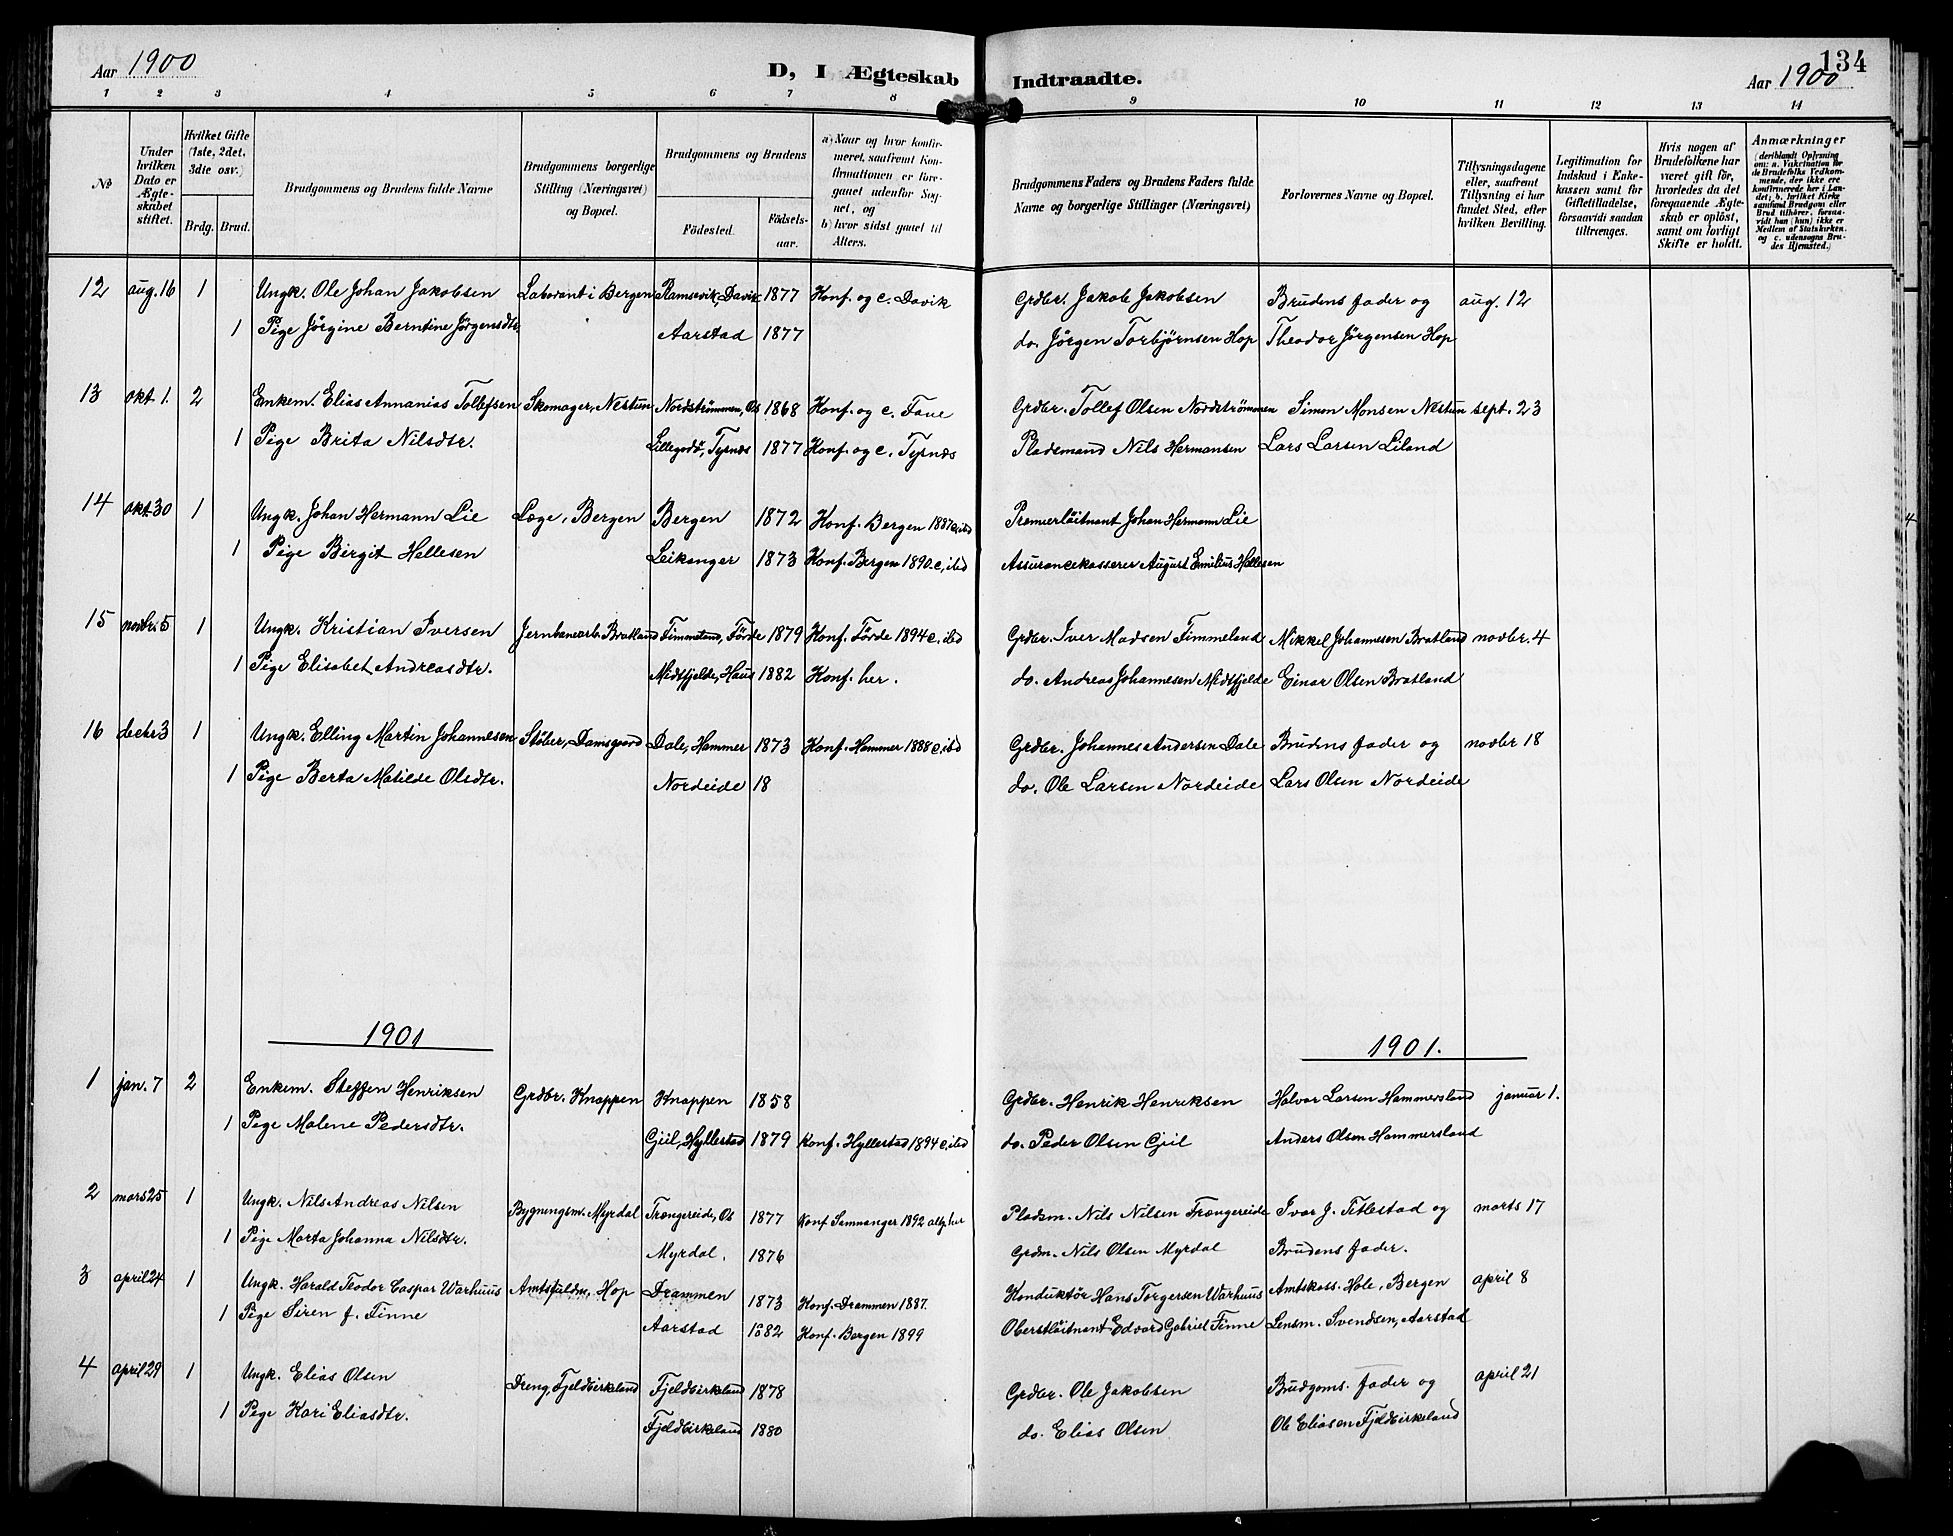 134
Aar 1900
D, I Ægteskab Indtraadte.
Aar 1900
1 2 3 4 5 6 7 8 9 10 11 12 13 14
No
Under hvilken Dato er Ægteskabet stiftet.
Hvilket Gifte (1ste, 2det, 3die osv.)
Brdg. Brud.
Brudgommens og Brudens fulde Navne
Brudgommens borgerlige Stilling (Næringsvei) og Bopæl.
Brudgommens og Brudens
Fødested. Fødsels-aar.
a) Naar og hvor konfirmeret, saafremt Konfirmationen er foregaaet udenfor Sognet, og
b) hvor sidst gaaet til Alters.
Brudgommens Faders og Brudens Faders fulde Navne og borgerlige Stillinger (Næringsvei)
Forlovernes Navne og Bopæl.
Tillysningsdagene eller, saafremt Tillysning ei har fundet Sted, efter hvilken Bevilling.
Legitimation for Indskud i Enkekassen samt for Giftetilladelse, forsaavidt saadan tiltrænges.
Hvis nogen af Brudefolkene har været gift før, hvorledes da det foregaaende Ægteskab er opløst, samt om lovligt Skifte er holdt.
Anmærkninger
(deriblandt Oplysning om: a. Vakcination for de Brudefolks Vedkommende, der ikke ere konfirmerede her i Landet; b. hvilket Kirkesamfund Brudgom eller Brud tilhører, forsaavidt han (hun) ikke er Medlem af Statskirken. og c. udensogns Brudes Hjemsted.)
12 aug. 16 1 Ungk. Ole Johan Jakobsen Laborant i Bergen Ramsvik, Davik 1877 Konf. og c. Davik Grdbr. Jakob Jakobsen Brudens fader og aug. 12
1 Pige Jörgine Berntine Jörgensdtr. Aarstad 1877 do. Jörgen Torbjørnsen Hop Theodor Jörgensen Hop
13 okt 1. 2 Enkem. Elias Annanias Tollefsen Skomager, Nestun Nordströmmen, Os 1868 Konf. og c. Fane Grdbr. Tollef Olsen Nordströmmen Simon Monsen Nestun sept. 23
1 Pige Brita Nilsdtr. Lillegodö, Tysnæs 1877 Konf. og c. Tysnæs Pladsmand Nils Hermansen Lars Larsen Liland
14 okt. 30 1 Ungk. Johan Hermann Lie Læge, Bergen Bergen 1872 Konf. Bergen 1887 c. ibd Premierlöitnant Johan Hermann Lie
1 Pige Birgit Hellesen Leikanger 1873 Konf. Bergen 1890. c. ibd Assurancekasserer August Emilius Hellesen
15 novbr. 5 1 Ungk. Kristian Iversen Jernbanearb. Bratland Fimmeland, Førde 1879 Konf. Förde 1894 c. ibd Grdbr. Iver Madsen Fimmeland Mikkel Johannesen Bratland novbr. 4
1 Pige Elisabet Andreasdtr. Midtfjelde, Haus 1882 Konf. her. do. Andreas Johannesen Midtfjelde Einar Olsen Bratland
16 decbr 3 1 Ungk. Elling Martin Johannesen Støber, Damsgaard Dale, Hammer 1873 Konf. Hammer 1888 c. ibd Grdbr. Johannes Andersen Dale Brudens fader og novbr 18
1 Pige Berta Matilde Olsdtr. Nordeide 18 do. Ole Larsen Nordeide Lars Olsen Nordeide
1901 1901.
1 jan. 7 2 Enkem. Steffen Henriksen Grdbr. Knappen Knappen 1858 Grdbr. Henrik Henriksen Halvor Larsen Hammersland januar 1.
1 Pige Malene Pedersdtr. Gjil, Hyllestad 1879 Konf. Hyllestad 1894 c. ibd do. Peder Olsen Gjil Anders Olsen Hammersland
2 mars 25 1 Ungk. Nils Andreas Nilsen Bygningsm. Myrdal Trængereide, Os 1877 Konf Samnanger 1892 altg. her Pladsm. Nils Nilsen Trængereide Ivar J. Titlestad og marts 17
1 Pige Marta Johanna Nilsdtr. Myrdal. 1876 Grdm. Nils Olsen Myrdal Brudens fader.
3 april 24 1 Ungk. Harald Teodor Caspar Warhuus Amtsfuldm, Hop Drammen 1873 Konf. Drammen 1887. Konduktör Hans Torgersen Warhuus Amtskass. Hole, Bergen april 8
1 Pige Siren f. Finne Aarstad 1882 Konf. Bergen 1899 Oberstlöitnant Edvard Gabriel Finne Lensm. Svendsen, Aarstad
4 april 29 1 Ungk. Elias Olsen Dreng, Fjeldbirkeland Fjeldbirkeland 1878 Grdbr. Ole Jakobsen Brudgoms. fader og april 21
1 Pige Kari Eliasdtr. Fjeldbirkeland 1880 do. Elias Olsen Ole Eliasen Fjeldbirkeland